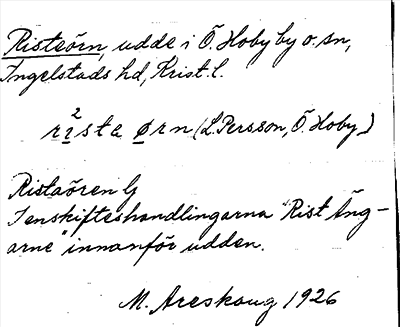 Risteörn, udde i Ö. Hoby by o. sn,
Ingelstads hd, Krist. l.
rı²sta ørn (L. Persson, Ö. Hoby)
Ristaören G
I enskifteshandlingarna "Rist Äng-
arne" innanför udden.
M. Areskoug 1926